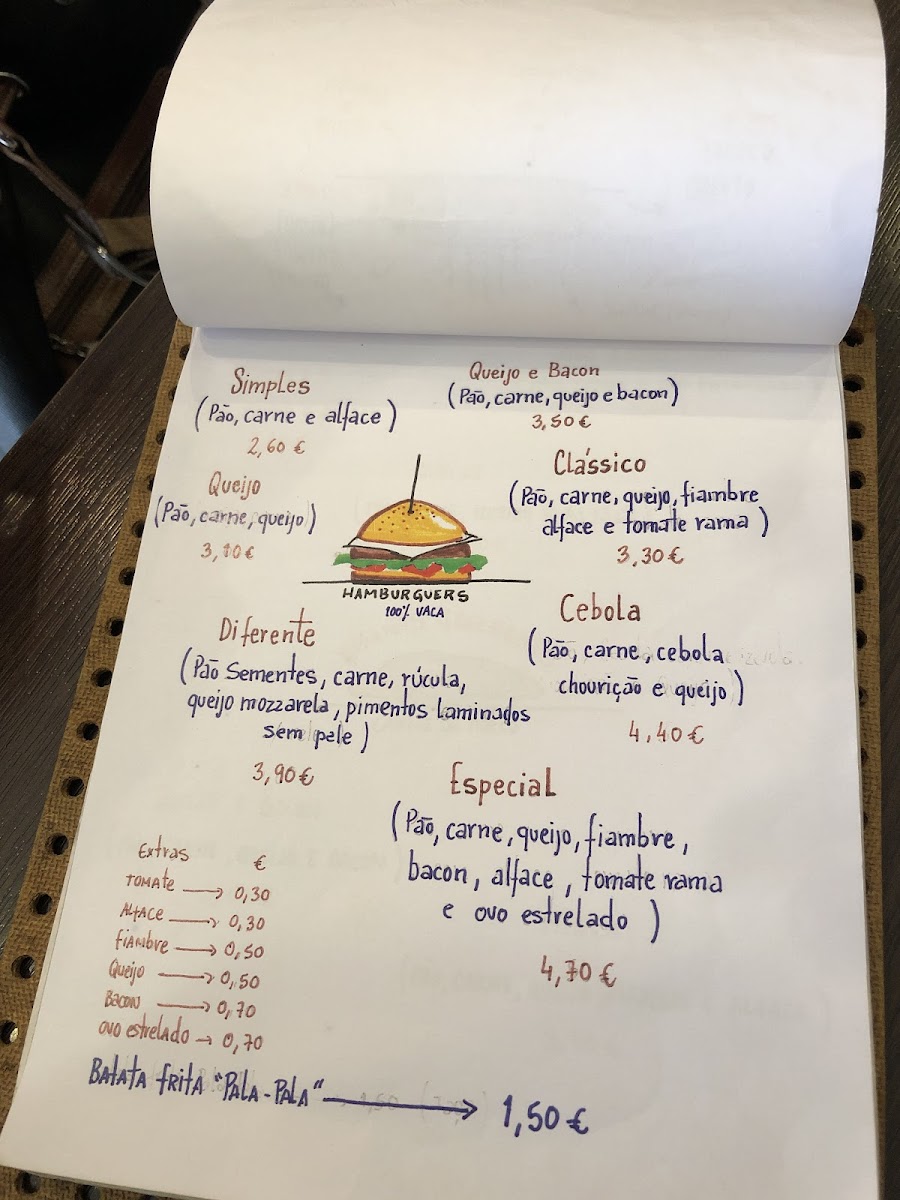 Simples
(Pão, carne e alface)
2,60 €
Queijo e Bacon
(Pão, carne, queijo e bacon)
3,50 €
Queijo
(Pão, carne, queijo)
3,10 €
Clássico
(Pão, carne, queijo, fiambre
alface e tomate rama)
3,30 €
HAMBURGUERS
100% VACA
Diferente
(Pão Sementes, carne, rúcula,
queijo mozzarela, pimentos laminados
sem pele)
3,90 €
Cebola
(Pão, carne, cebola
chourição e queijo)
4,40 €
Especial
(Pão, carne, queijo, fiambre,
bacon, alface, tomate rama
e ovo estrelado)
4,70 €
Extras €
TOMATE → 0,30
ALFACE → 0,30
fiAMbre → 0,50
Queijo → 0,50
BACON → 0,70
ovo estrelado → 0,70
BATATA frita "PALA-PALA" → 1,50 €